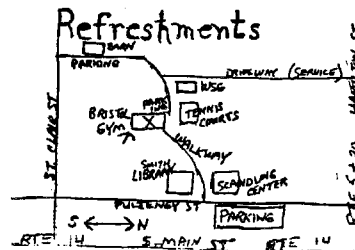 Refreshments
PARKING
DRIVEWAY (SERVICE)
WSG
TENNIS
COURTS
BRISTOL
GYM
WALKWAY
ST. CLAIR ST
SMITH
LIBRARY
SCANDLING
CENTER
PULTENEY ST
PARKING
S N
RTE 14 S. MAIN ST RTE 14
RTE 5 & 20